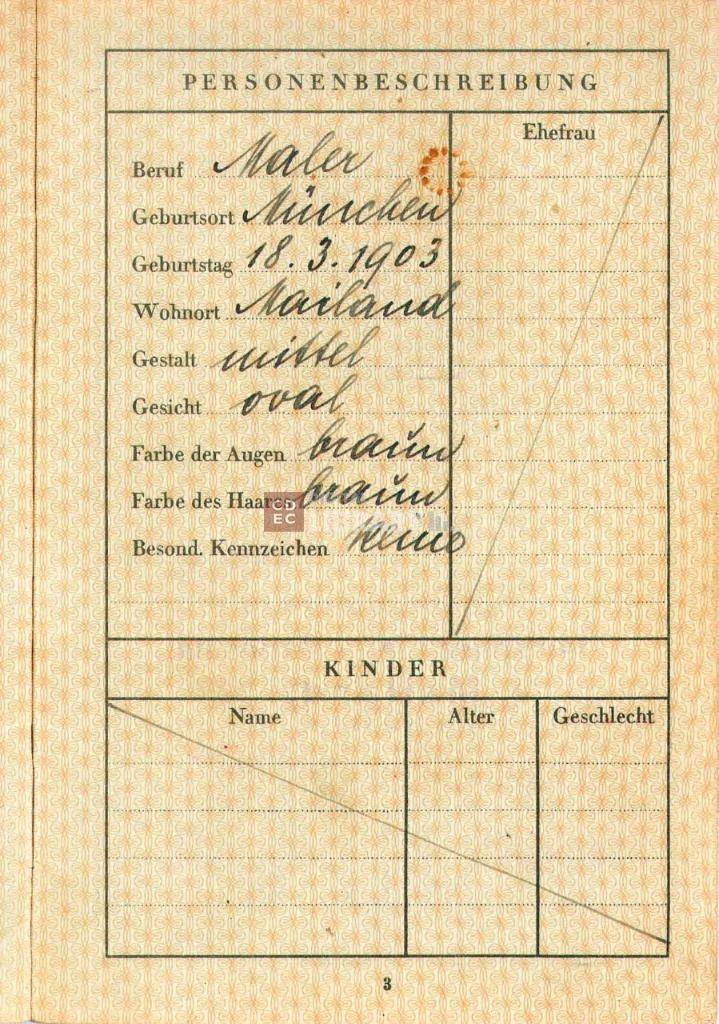 PERSONENBESCHREIBUNG
Ehefrau
Beruf Maler
Geburtsort München
Geburtstag 18.3.1903
Wohnort Mailand
Gestalt mittel
Gesicht oval
Farbe der Augen braun
Farbe des Haares braun
CD
EC
Besond. Kennzeichen Keine
KINDER
Name Alter Geschlecht
3